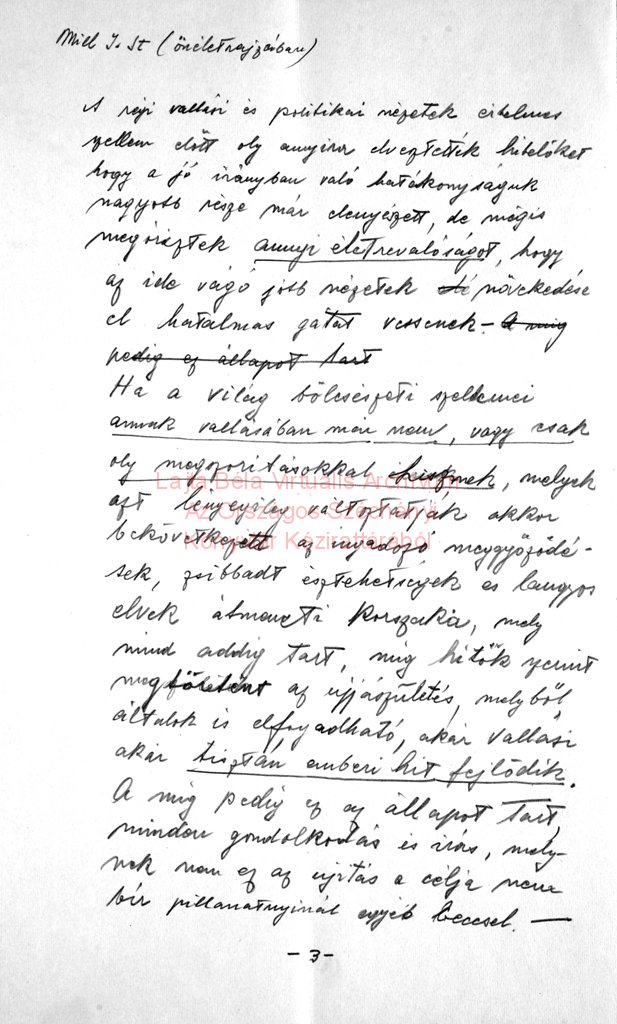 Mill J. St (önéletrajzában)
A régi vallási és politikai nézetek értelmes
szellem előtt oly annyira elvesztették hitelőket
hogy a jó irányban való hatékonyságuk
nagyobb része már elenyészett, de mégis
megőriztek annyi életrevalóságot, hogy
az ide vágó jobb nézetek növekedése
el hatalmas gátat vessenek - A mig
pedig ez állapot tart
Ha a világ bölcsészeti szellemei
annak vallásában már nem, vagy csak
oly megszoritásokkal hisznek, melyek
azt lényegileg változtatják akkor
bekövetkezett az ingadozó meggyőződé-
sek, zsibbadt észtehetségek és langyos
elvek átmeneti korszaka, mely
mind addig tart, mig hitök szerint
megtörtént az ujjászületés, melyből
általok is elfogadható, akár vallási
akár tisztán emberi hit fejlődik.
A mig pedig ez az állapot tart,
minden gondolkodás és irás, mely-
nek nem ez az ujitás a célja nem
bír pillanatnyinál egyéb beccsel. —
- 3 -
Lajta Béla Virtuális Archívum
Az Országos Széchényi
Könyvtár Kézirattárából